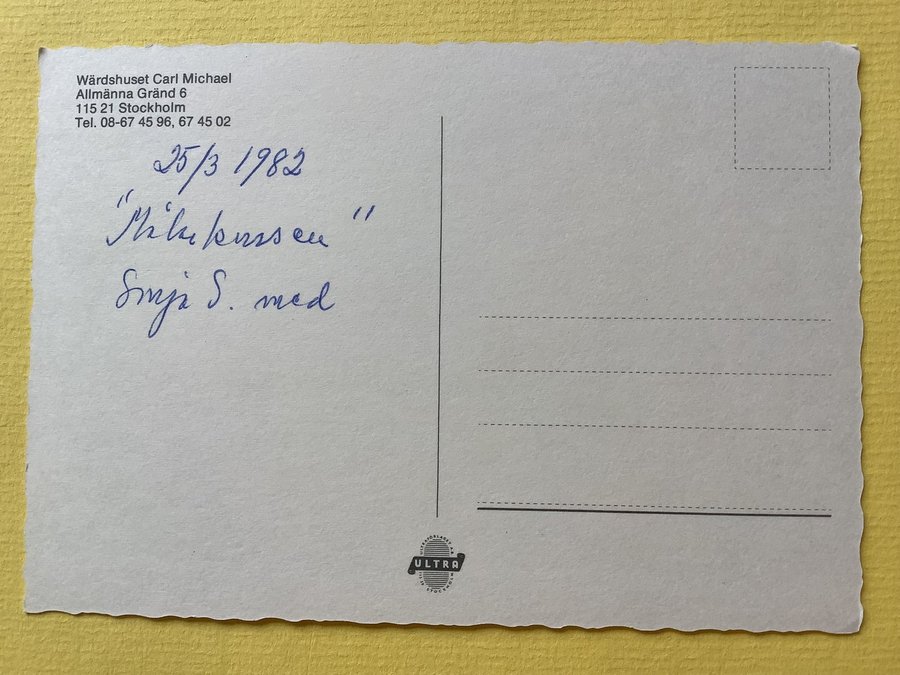 Wärdshuset Carl Michael
Allmänna Gränd 6
115 21 Stockholm
Tel. 08-67 45 96, 67 45 02
25/3 1982
S. med
ULTRA